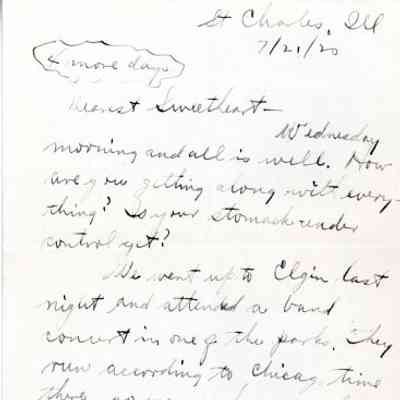 St Charles, Ill
7/21/20
4 more days
Dearest Sweetheart—
Wednesday
morning and all is well. How
are you getting along with every-
thing? Is your stomach under
control yet?
We went up to Elgin last
night and attended a band
concert in one of the parks. They
run according to Chicag time
there